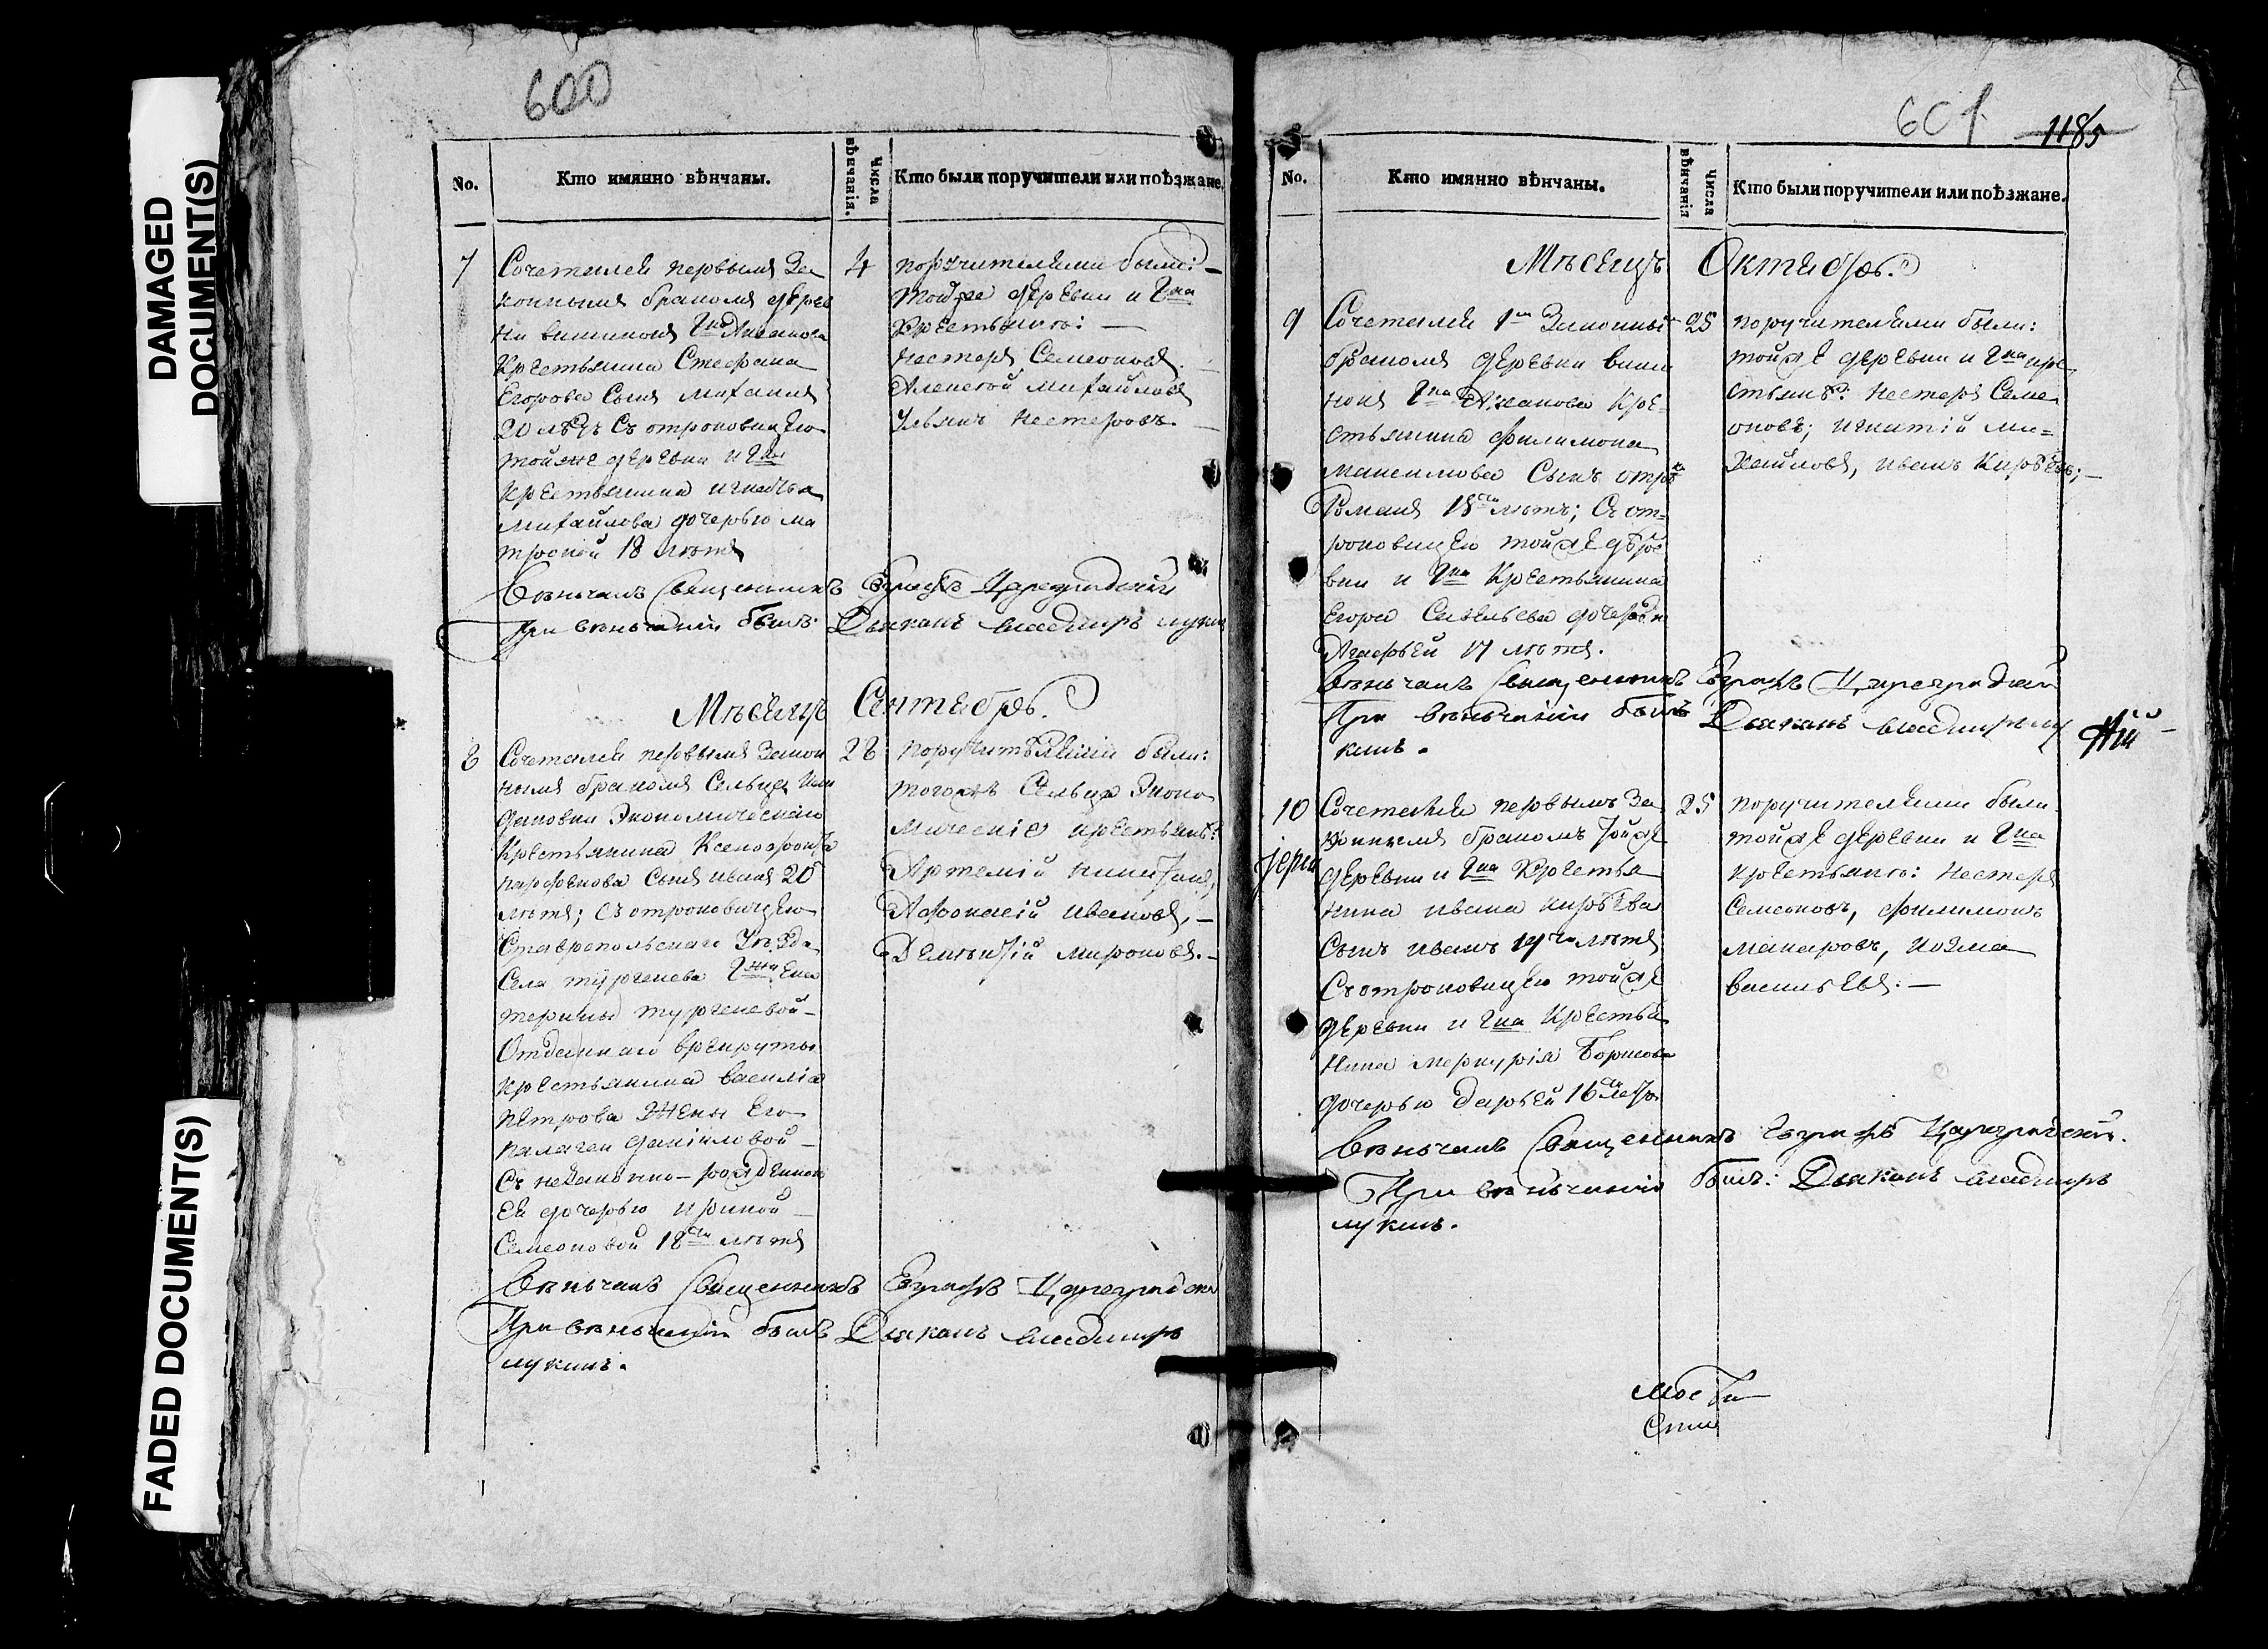 DAMAGED
DOCUMENT(S)
FADED DOCUMENT(S)
600
No.
Кто имянно вѣнчаны.
Числа
вѣнчанія.
Кто были поручители или поѣзжане.
7
Сочетался первымъ За
коннымъ бракомъ дерев
ни
Крестьянина Стефана
Егорова Сынъ михаилъ
20 лѣтъ Съ отроковицею
тойже деревни и Гна
Крестьянина игнатья
михайлова дочерью ма
троной 18 лѣтъ
4
поручителями были:
тойже деревни и Гна
Крестьяне:
нестеръ Семеоновъ
Алексѣй михайловъ
Ульянъ нестеровъ.
Вѣнчалъ Священникъ Евграфъ Цареградскій
При вѣнчаніи былъ Діаконъ владимиръ лукин
Мѣсецъ Сентебрь.
8
Сочетался первымъ Закон
нымъ бракомъ Сельца
Экономическаго
Крестьянина Ксенофонта
парфенова Сынъ иванъ 20
лѣтъ; Съ отроковицею
Ставропольскаго Уѣзда
Села тургенева Гжи Ека
терины тургеневой
Отданнаго врекруты
крестьянина василіа
петрова Жены Его
пелагеи даніиловой
Съ незаконно-рожденною
Ея дочерью ириной
Семеоновой 18 лѣтъ
28
поручителями были:
тогожъ Сельца Эконо
мическіе крестьяне:
Артемій
Афонасій ивановъ,
Деменьтій мироновъ.
Вѣнчалъ Священникъ Евграфъ Цареградскій
При вѣнчаніи былъ Діаконъ владимиръ
лукинъ.
601
1185
No.
Кто имянно вѣнчаны.
Числа
вѣнчанія
Кто были поручители или поѣзжане.
Мѣсецъ Октебрь.
9
Сочетался 1м Законным
бракомъ деревни
Гна Кре=
стьянина филимона
Сынъ отрокъ
Романъ 18 лѣтъ; Съ от=
роковицею тойже дере
вни и Гна Крестьянина
Егора Савельева дочерью
Агафьей 17 лѣтъ.
25
поручителями были:
тойже деревни и Гна кре
стьяне: нестеръ Семе
оновъ; игнатій ми=
хайловъ, иванъ Кирѣевъ;
Вѣнчалъ Священникъ Евграфъ Цареградский
При вѣнчаніи былъ Діаконъ владимиръ лу
кинъ.
10
Сочетался первымъ За
коннымъ бракомъ тойже
деревни и Гна Крестья
нина ивана кирѣева
Сынъ иванъ 19 лѣтъ
Съ отроковицею тойже
деревни и Гна Крестья
нина меркурія Борисова
дочерью дарьей 16 лѣтъ
25
поручителями были
тойже деревни и Гна
крестьяне: нестеръ
Семеоновъ, филимонъ
макаровъ, козма
васильевъ.
Вѣнчалъ Священникъ Евграфъ Цареградскій.
При вѣнчаніи былъ: Діаконъ владимиръ
лукинъ.